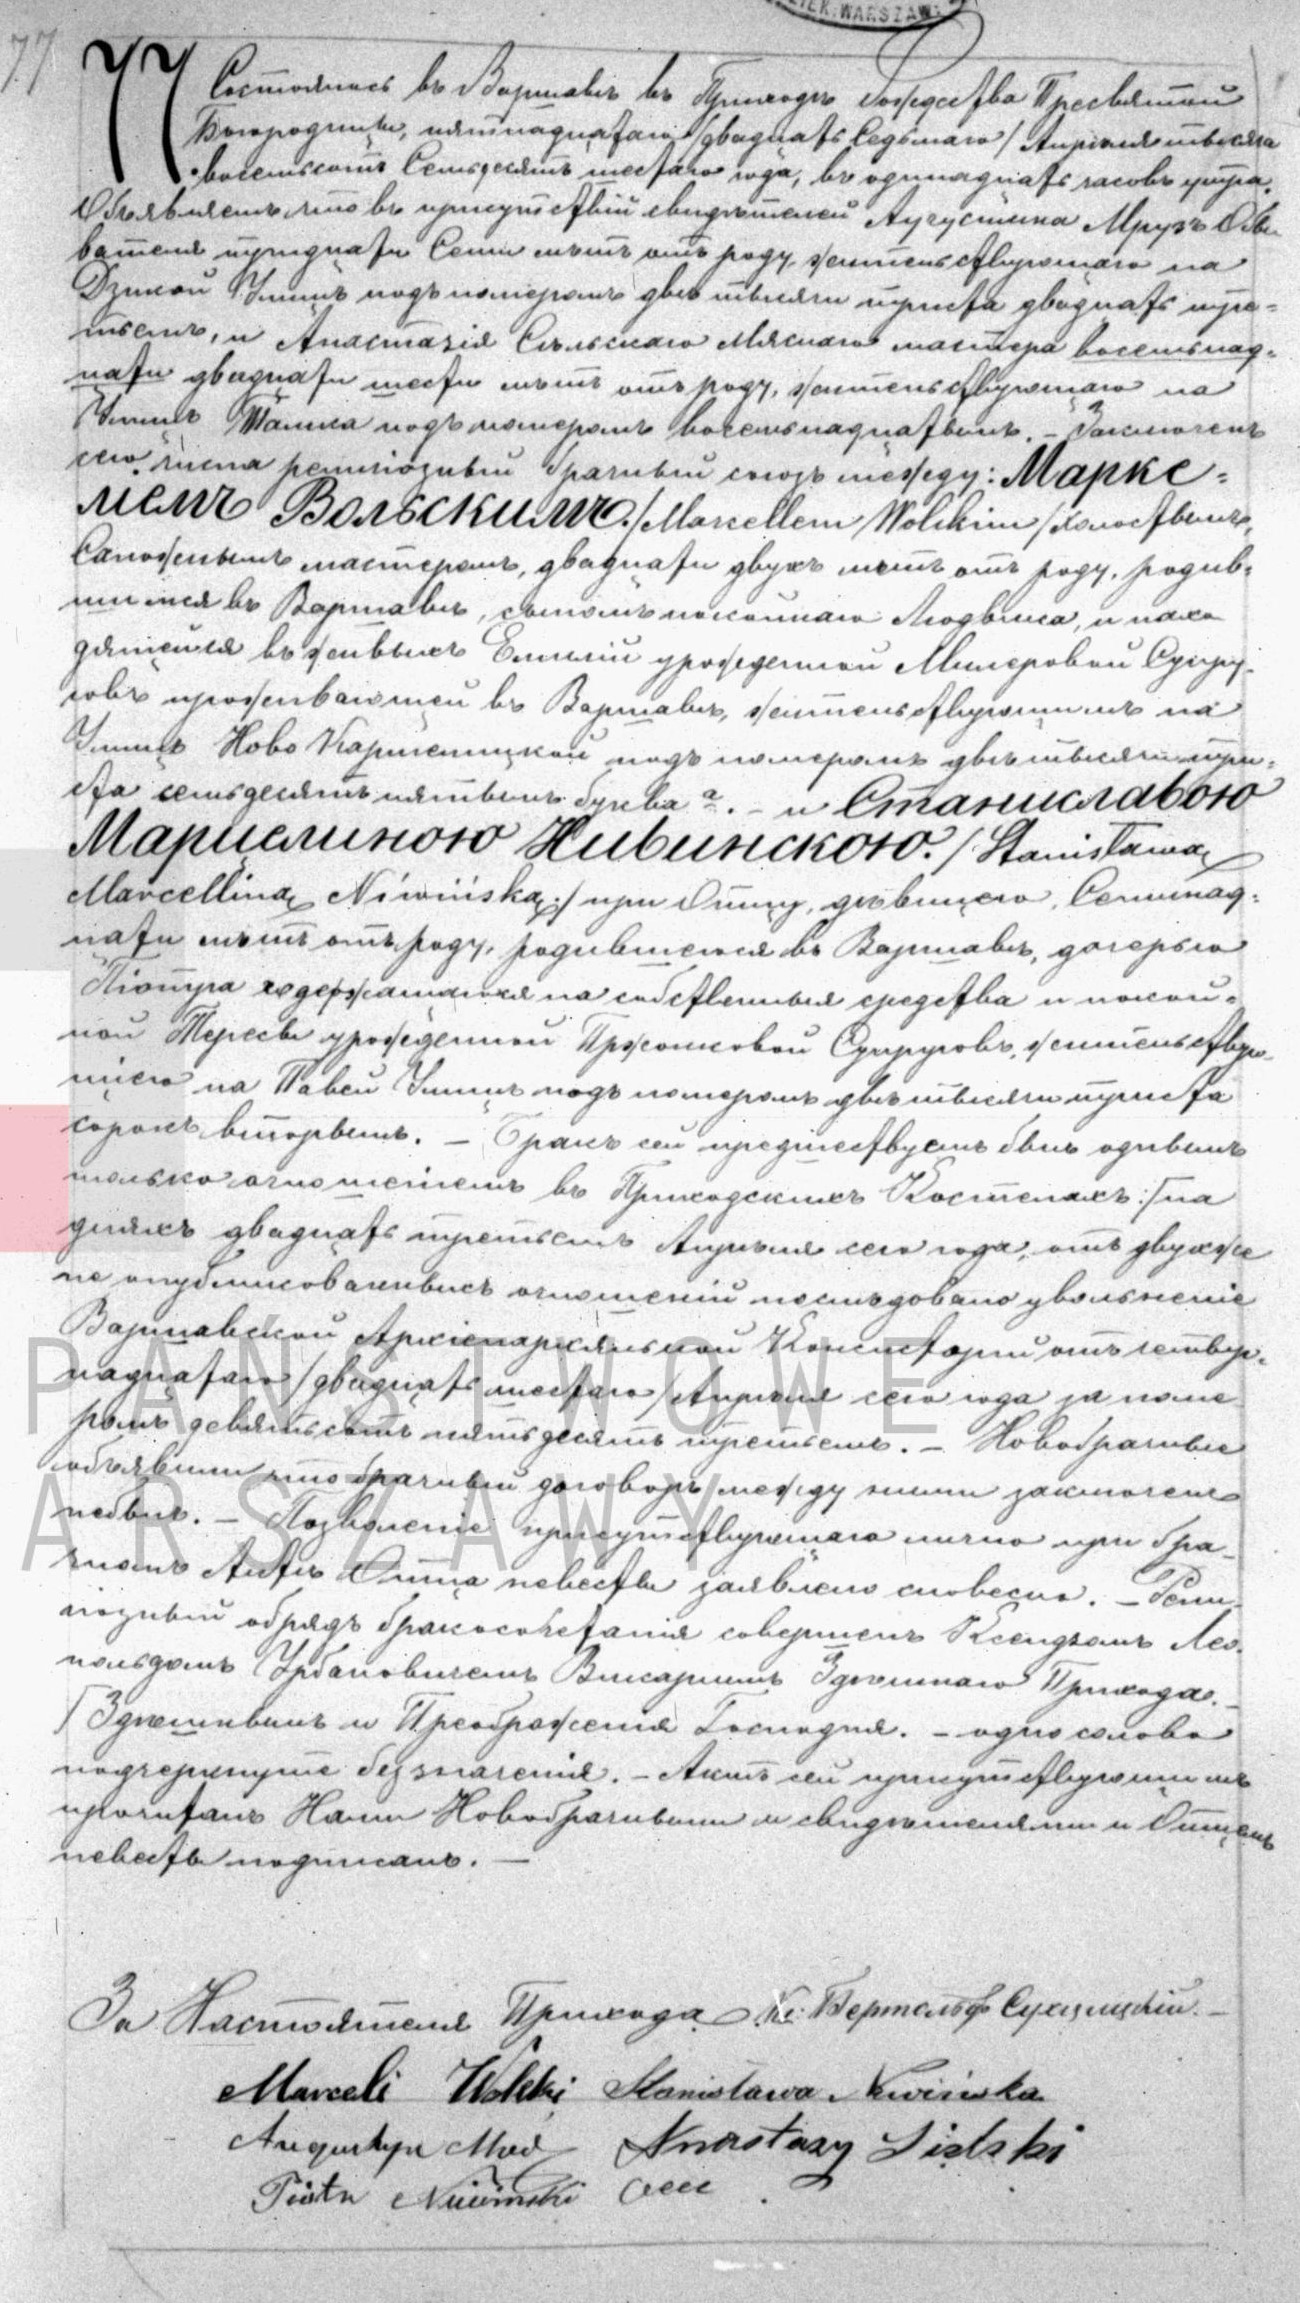 77
ZIEK. WARSZAW.
77 Состоялось въ Варшавѣ въ Приходѣ Рождества Пресвятой
Богородицы, пятнадцатаго /двадцать седьмаго/ Апрѣля тысяча
восемьсотъ семьдесятъ шестаго года, въ одинадцать часовъ утра.
Объявляемъ что въ присутствіи свидѣтелей Августина Мрузъ Обы-
вателя тридцати семи лѣтъ отъ роду, жительствующаго на
Дзикой Улицѣ подъ номеромъ двѣ тысячи триста двадцать тре-
тьемъ, и Анастазія Сѣльскаго Мяснаго мастера восемьнад-
цати двадцати шести лѣтъ отъ роду, жительствующаго на
Улицѣ Тамка подъ номеромъ восемьнадцатымъ. – Заключенъ
сего числа религіозный брачный союзъ между: Марке-
лемъ Вольскимъ. /Marcellem Wolskim/ холостымъ,
Сапожнымъ мастеромъ, двадцати двухъ лѣтъ отъ роду, родив-
шимся въ Варшавѣ, сыномъ покойнаго Людвика, и нахо
дящейся въ живыхъ Емиліи урожденной Милеровой Супру-
говъ проживающей въ Варшавѣ, жительствующимъ на
Улицѣ Ново Кармелицкой подъ номеромъ двѣ тысячи три-
ста семьдесятъ пятымъ буква а. – и Станиславою
Марцелиною Нивинскою. /Stanisławą
Marcelliną Niwińską:/ при Отцу, дѣвицею, Семнад-
цати лѣтъ отъ роду, родившеюся въ Варшавѣ, дочерью
Піотра содержащагося на собственныя средства и покой-
ной Тересы урожденной Супруговъ, жительствую-
щею на Павей Улицѣ подъ номеромъ двѣ тысячи триста
сорокъ вторымъ. – Бракъ сей предшествуемъ былъ однымъ
только оглашеніемъ въ Приходскихъ Костелахъ: /на
дняхъ двадцать третьемъ Апрѣля сего года, отъ двухъ же
не опубликованныхъ оглашеній послѣдовало увольненіе
Варшавской Архіепархіяльной Консисторіи отъ четыр-
надцатаго /двадцать шестаго/ Апрѣля сего года за номе
ромъ девятьсотъ пятьдесятъ третьемъ. – Новобрачные
объявили что брачный договоръ между ними заключенъ
небылъ. – Позволеніе присутствующаго лично при бра-
чномъ Актѣ Отца невесты заявлено словесно. – Рели-
гіозный обрядъ бракосочетанія совершенъ Ксендзомъ Лео-
польдомъ Урбановичемъ Викаріемъ Здѣшнаго Прихода. –
/ Здѣшнымъ и Преображенія Господня. – одно слово
подчеркнуте безъ значенія. – Актъ сей присутствующимъ
прочитанъ Нами Новобрачными и свидѣтелями и Отцемъ
невесты подписанъ. –
За Настоятеля Прихода Кс:
Marceli Wolski Stanisława Niwińska
Augustyn Mroz Anastazy Sielski
Piotr Niwinski Ociec
PAŃSTWOWE
ARSZAWY